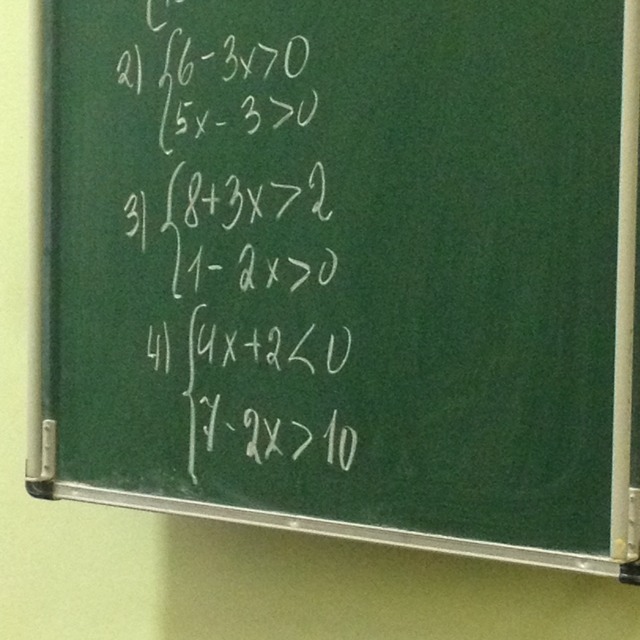 2) {6-3x>0
{5x-3>0
3) {8+3x>2
{1-2x>0
4) {4x+2<0
{7-2x>10